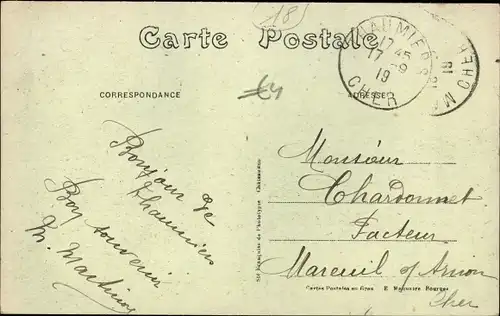 (18)
Carte Postale
CHAUMIERS
17 45
17 -9
19
CHER
CORRESPONDANCE
€4
ADRESSE
Bonjour de
Chaumiers
Bon souvenir
M. Martinon
Sté Française de Phototypie
Monsieur
Chardonnet
Facteur
Mareuil s/ Arnon
Cher
Cartes Postales en Gros. E. Bourges